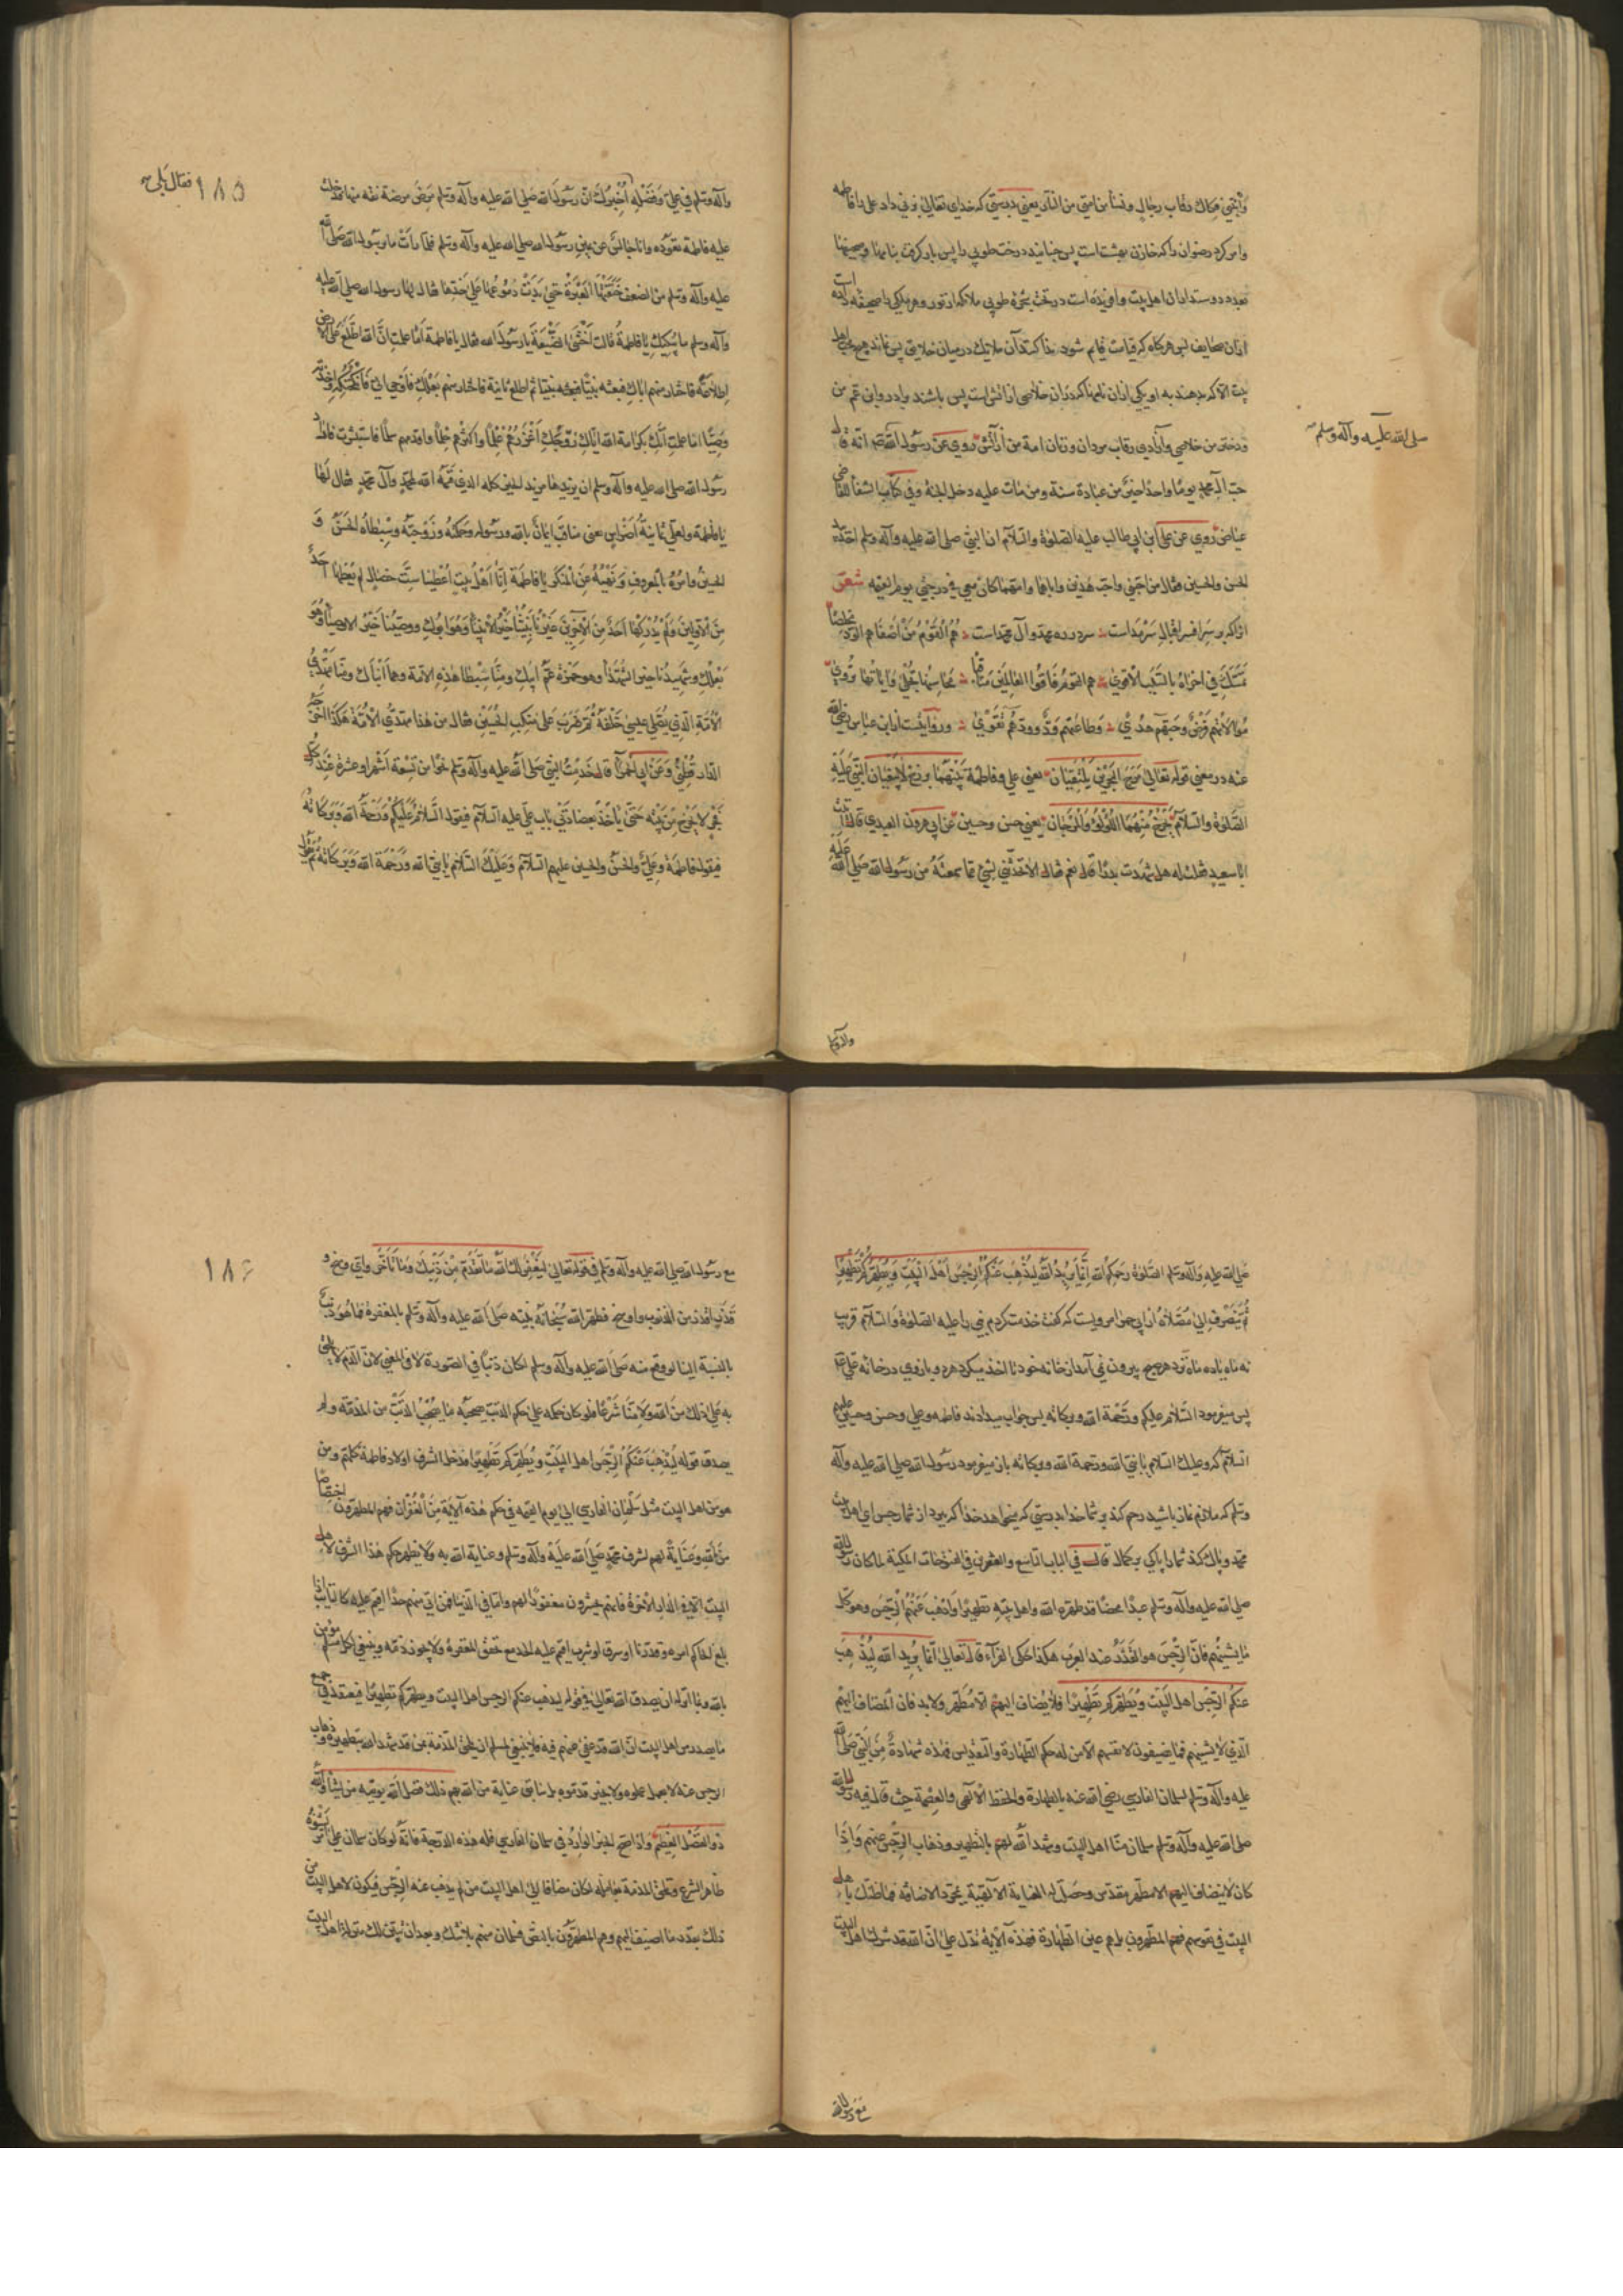 وابنتي فكاك رقاب رجال ونساء من امتي من النار يعني بدرستي كه خداي تعالى تزويج داد علي با فاطمه
وامر كرد رضوان را كه خازن بهشت است پس جنبانيد درخت طوبى را پس بار گرفت
بعدد دوستداران اهل بيت وافريده است در تحت شجرهٔ طوبى ملائكه از نور وهر يكي را صحيفه داده است
ازان صحايف پس هرگاه كه قيامت قايم شود ندا كنند آن ملايك درميان خلايق پس نماند هيچ محب اهل
بيت الا كه بدهند به او يكي ازان نامها كه دران خلاصي از اتش است پس باشند برادر وابن عم من
ودختر من خلاصي وآزادي رقاب مردان وزنان امة من از آتش روي عن رسول الله صلعم انه قال
صلى الله عليه وآله وسلم
حب آل محمد يوما واحدا خير من عبادة سنة ومن مات عليه دخل الجنة وفي كتاب الشفا للقاضي
عياض روي عن علي ابن ابي طالب عليه الصلوة والسلام ان النبي صلى الله عليه وآله وسلم اخذ بيد
الحسن والحسين فقال من احبني واحب هذين واباهما وامهما كان معي في درجتي يوم القيمة شعر
انرا كه بر سر افسر اقبال سرمداست سر در ره محمد وآل محمداست هم القوم من اصفاهم الود مخلصا
تمسك في اخراه بالسبب الاقوى هم القوم فاقوا العالمين مناقبا محاسنها تجلى واياتها تروى
موالاتهم فرض وحبهم هدى وطاعتهم ود وودهم تقوى وروايتست از ابن عباس رضي الله
عنه در معني قوله تعالى مرج البحرين يلتقيان يعني علي وفاطمة بينهما برزخ لا يبغيان النبي عليه
الصلوة والسلام يخرج منهما اللؤلؤ والمرجان يعني حسن وحسين عن ابي هرون العبدي قال اتيت
ابا سعيد فقلت له هل شهدت بدرا قال نعم فقال الا تحدثني بشئ مما سمعته من رسول الله صلى الله عليه
وآله وسلم
١٨٥
فقال بلى
وآله وسلم في علي وفضله اخبرك ان رسول الله صلى الله عليه وآله وسلم مرض مرضة نقه منها فدخلت
عليه فاطمة تعوده وانا جالس عن يمين رسول الله صلى الله عليه وآله وسلم فلما رأت ما برسول الله صلى الله
عليه وآله وسلم من الضعف خنقتها العبرة حتى بدت دموعها على خدها فقال لها رسول الله صلى الله عليه
وآله وسلم ما يبكيك يا فاطمة قالت اخشى الضيعة يا رسول الله فقال يا فاطمة اما علمت ان الله اطلع على الارض
اطلاعة فاختار منهم اباك فبعثه نبيا ثم اطلع ثانية فاختار منهم بعلك فاوحى الي فانكحتكه واتخذته
وصيا اما علمت انك بكرامة الله اياك زوجك اغزرهم علما واكثرهم حلما واقدمهم سلما فاستبشرت فاراد
رسول الله صلى الله عليه وآله وسلم ان يزيدها مزيد الخير كله الذي قسمه الله لمحمد وآل محمد فقال لها
يا فاطمة ولعلي ثمانية اضراس يعني مناقب ايمان بالله ورسوله وحكمته وزوجته وسبطاه الحسن و
الحسين وامره بالمعروف ونهيه عن المنكر يا فاطمة انا اهل بيت اعطينا ست خصال لم يعطها احد
من الاولين ولم يدركها احد من الآخرين غيرنا نبينا خير الانبياء وهو ابوك ووصينا خير الاوصياء وهو
بعلك وشهيدنا خير الشهداء وهو حمزة عم ابيك ومنا سبطا هذه الامة وهما ابناك ومنا مهدي
الامة الذي يصلي عيسى خلفه ثم ضرب على منكب الحسين فقال من هذا مهدي الامة هكذا اخرجه
الدار قطني وعن ابي الحمرا قال خدمت النبي صلى الله عليه وآله وسلم نحوا من تسعة اشهر او عشرة عند كل
فجر لا يخرج من بيته حتى يأخذ بعضادتي باب علي عليه السلام فيقول السلام عليكم ورحمة الله وبركاته
فيقول فاطمة وعلي والحسن والحسين عليهم السلام وعليك السلام يا نبي الله ورحمة الله وبركاته ثم يقول
صلى الله عليه وآله وسلم الصلوة رحمكم الله انما يريد الله ليذهب عنكم الرجس اهل البيت ويطهركم تطهيرا
ثم ينصرف الى مصلاه از ابي حمرا مرويست كه گفت خدمت كردم نبي را عليه الصلوة والسلام قريب
نه ماه يا ده ماه نزد هر صبح بيرون نمي آمد از خانه خود تا اخذ ميكرد هر دو بازوي در خانه علي
پس ميفرمود السلام عليكم ورحمة الله وبركاته پس جواب ميدادند فاطمه وعلي وحسن وحسين عليهم
السلام كه وعليك السلام يا نبي الله ورحمة الله وبركاته باز ميفرمود رسول الله صلى الله عليه وآله
وسلم كه ملازم نماز باشيد رحم كند بر شما خدا بدرستي كه ميخواهد خدا كه ببرد از شما رجس اي اهل بيت
محمد وپاك كند شما را پاكي بر كمال قال في الباب التاسع والعشرين في الفتوحات المكية لما كان رسول الله
صلى الله عليه وآله وسلم عبدا محضا قد طهره الله واهل بيته تطهيرا واذهب عنهم الرجس وهو كل
ما يشينهم فان الرجس هو القذر عند العرب هكذا حكى الفراء قال تعالى انما يريد الله ليذهب
عنكم الرجس اهل البيت ويطهركم تطهيرا فلا يضاف اليهم الا مطهر ولا بد فان المضاف اليهم
الذي لا يشينهم فما يضيفون لانفسهم الا من له حكم الطهارة والتقديس فهذه شهادة من النبي صلى الله
عليه وآله وسلم لسلمان الفارسي رضي الله عنه بالطهارة والحفظ الالهي والعصمة حيث قال فيه رسول الله
صلى الله عليه وآله وسلم سلمان منا اهل البيت وشهد الله لهم بالتطهير وذهاب الرجس عنهم واذا
كان لا ينضاف اليهم الا مطهر مقدس وحصلت له العناية الالهية بمجرد الاضافة فما ظنك باهل
البيت في نفوسهم فهم المطهرون بل هم عين الطهارة فهذه الآية تدل على ان الله قد شرك اهل البيت
مع رسول الله
١٨٦
مع رسول الله صلى الله عليه وآله وسلم في قوله تعالى ليغفر لك الله ما تقدم من ذنبك وما تأخر واي وسخ و
قذر اقذر من الذنوب واوسخ فطهر الله سبحانه نبيه صلى الله عليه وآله وسلم بالمغفرة فما هو ذنب
بالنسبة الينا لو وقع منه صلى الله عليه وآله وسلم لكان ذنبا في الصورة لا في المعنى لان الذم لا يلحق
به على ذلك من الله ولا منا شرعا فلو كان حكمه على حكم الذنب صحبه ما يصحب الذنب من المذمة ولم
يصدق قوله ليذهب عنكم الرجس اهل البيت ويطهركم تطهيرا فدخل الشرفا اولاد فاطمة كلهم ومن
هو من اهل البيت مثل سلمان الفارسي الى يوم القيمة في حكم هذه الآية من الغفران فهم المطهرون اختصاصا
من الله وعناية لهم لشرف محمد صلى الله عليه وآله وسلم وعناية الله به ولا يظهر حكم هذا الشرف لاهل
البيت الا في الدار الآخرة فانهم يحشرون مغفورا لهم واما في الدنيا فمن اتى منهم حدا اقيم عليه كالتائب اذا
بلغ الحاكم امره وقد زنا او سرق او شرب اقيم عليه الحد مع تحقق المغفرة ولا يجوز ذمه وينبغي لكل مسلم مؤمن
بالله وبما انزله ان يصدق الله تعالى في قوله ليذهب عنكم الرجس اهل البيت ويطهركم تطهيرا فيعتقد في جميع
ما يصدر من اهل البيت ان الله قد عفى عنهم فيه فلا ينبغي لمسلم ان يلحق المذمة بمن قد شهد الله بتطهيره وذهاب
الرجس عنه لا بعمل عملوه ولا بخير قدموه بل سابق عناية من الله بهم ذلك فضل الله يؤتيه من يشاء والله
ذو الفضل العظيم واذا صح الخبر الوارد في سلمان الفارسي فله هذه الدرجة فانه لو كان سلمان على امر يشنؤه
ظاهر الشرع وتلحق المذمة بعامله لكان مضافا الى اهل البيت من لم يذهب عنه الرجس فيكون لاهل البيت من
ذلك بقدر ما اضيف اليهم وهم المطهرون بالنص فسلمان منهم بلا شك